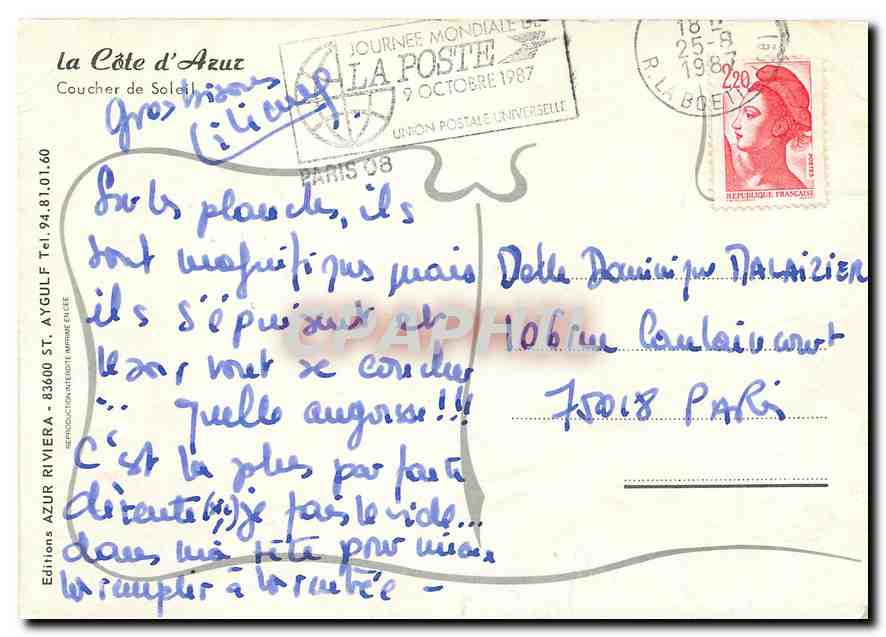 la Côte d'Azur
Coucher de Soleil
Gros bisous
JOURNEE MONDIALE DE
LA POSTE
9 OCTOBRE 1987
UNION POSTALE UNIVERSELLE
PARIS 08
18 H
25-8
1987
R. LA BOETIE
2,20
POSTES
REPUBLIQUE FRANÇAISE
Sur les planches, ils
sont magnifiques mais
ils s'épuisent et
le soir vont se coucher
... quelle angoisse!!!
C'est la plus parfaite
détente je fais le vide...
dans ma tête pour mieux
la remplir à la rentrée -
Delle Dominique MALAIZIER
106 rue Caulaincourt
75018 PARis
Editions AZUR RIVIERA - 83600 ST. AYGULF Tel. 94.81.01.60
REPRODUCTION INTERDITE IMPRIMÉ EN CEE
CPAPHIL